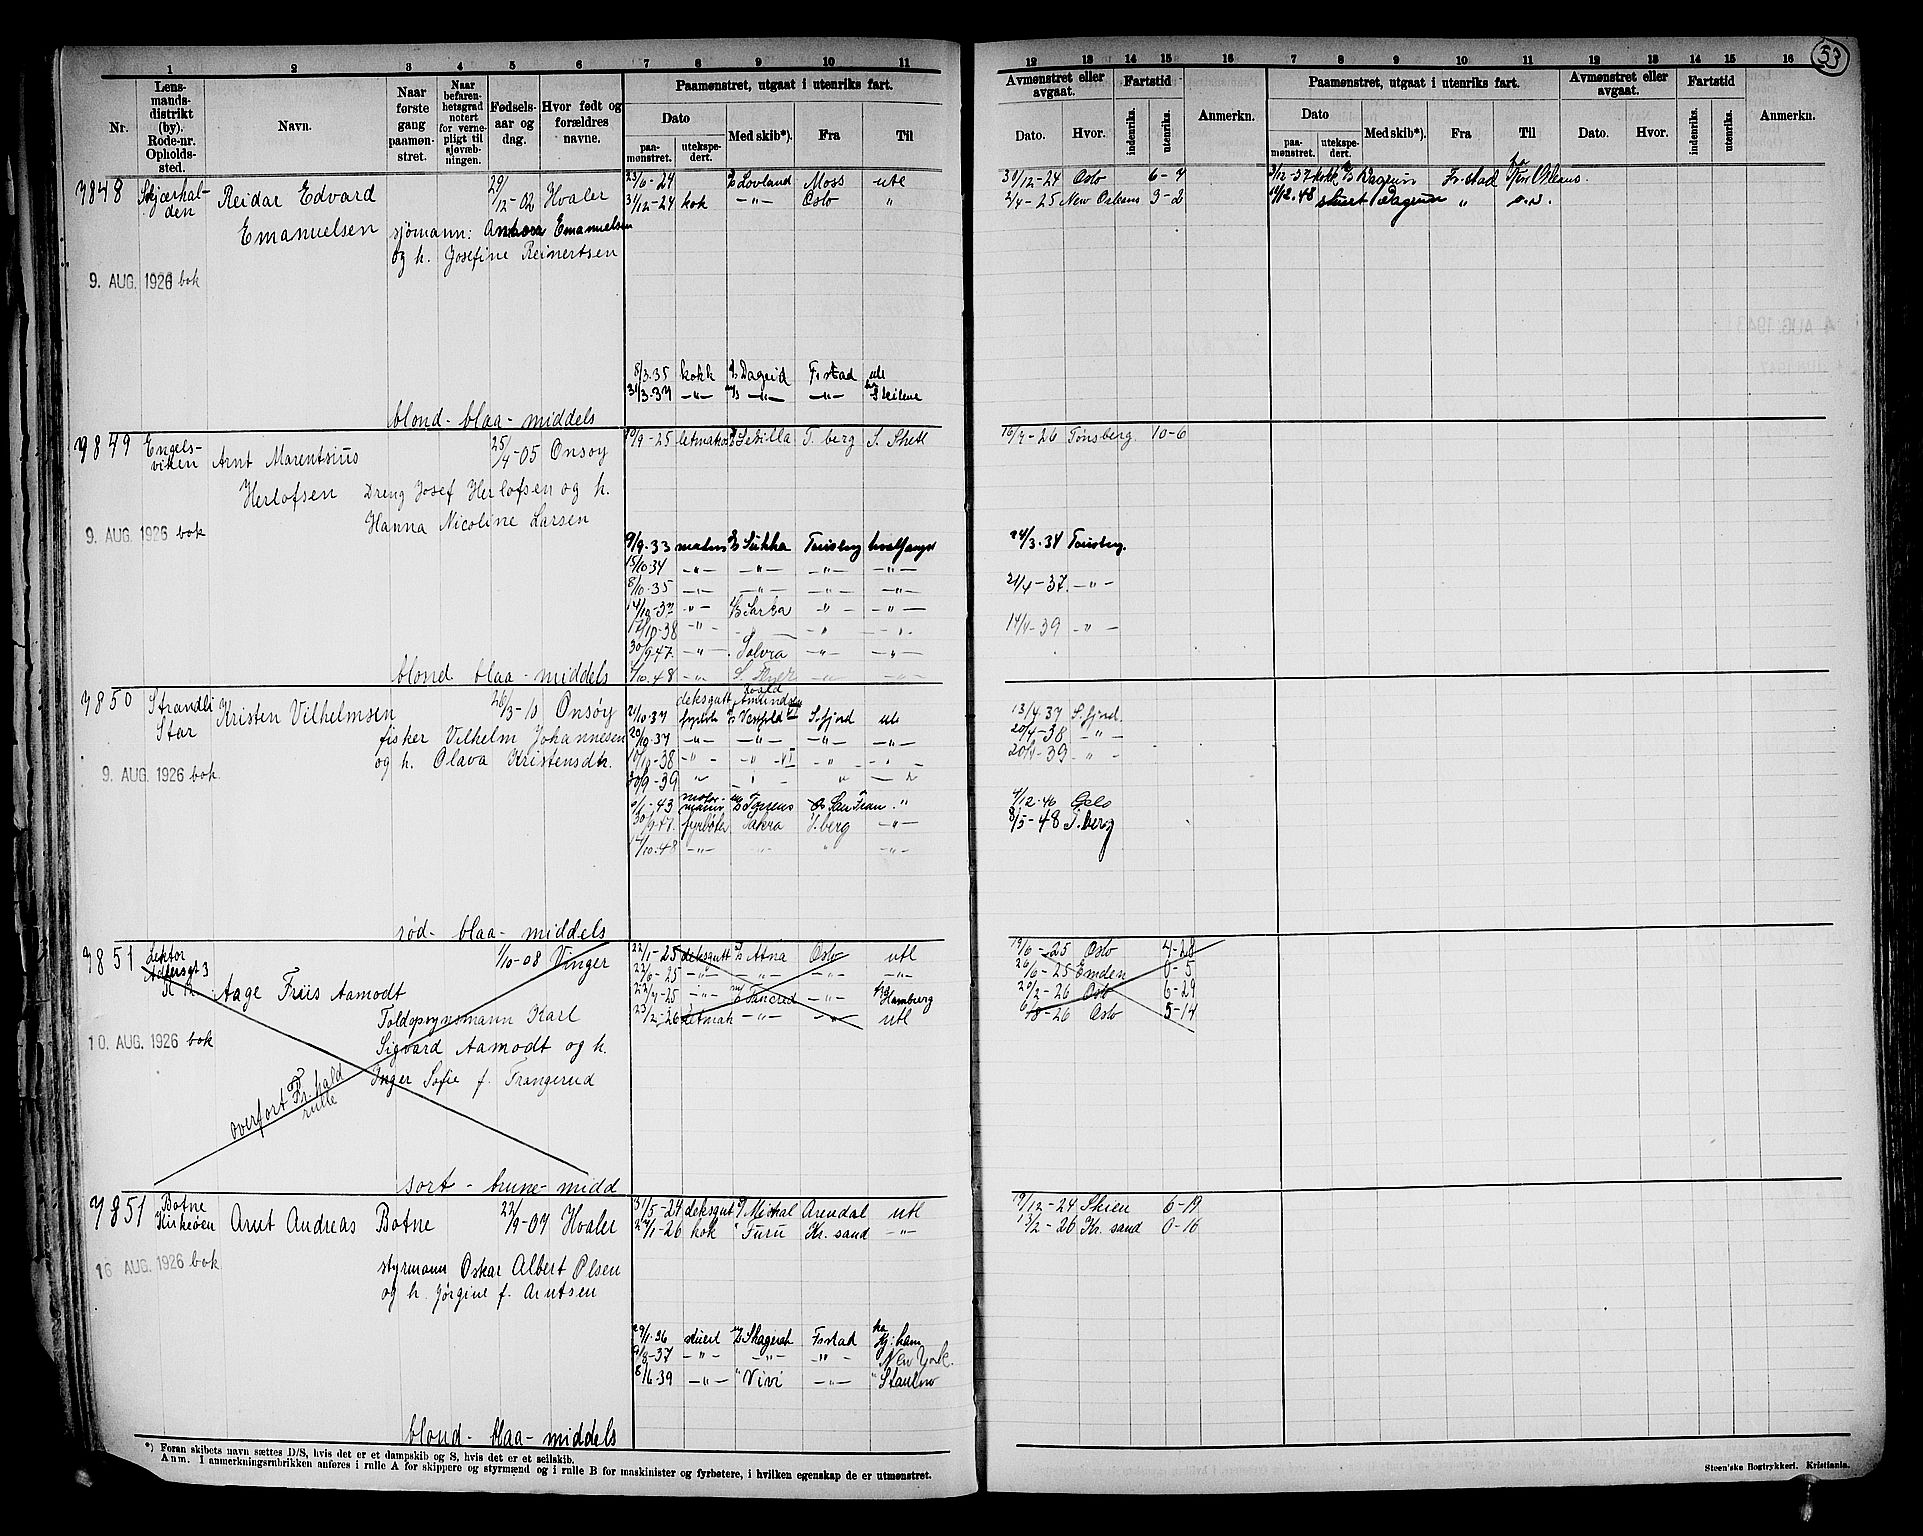 53
1 2 3 4 5 6 7 8 9 10 11
12 13 14 15 16 7 8 9 10 11 12 13 14 15 16
Nr.
Lens-
mands-
distrikt
(by).
Rode-nr.
Opholds-
sted.
Navn.
Naar
første
gang
paamøn-
stret.
Naar
befaren-
hetsgrad
notert
for verne-
pligt til
sjøvæb-
ningen.
Fødsels-
aar og
dag.
Hvor født og
forældres
navne.
Paamønstret, utgaat i utenriks fart.
Dato
paa-
mønstret.
utekspe-
dert.
Med skib*).
Fra
Til
Avmønstret eller
avgaat.
Dato.
Hvor.
Fartstid
indenriks.
utenriks.
Anmerkn.
Paamønstret, utgaat i utenriks fart.
Dato
paa-
mønstret.
utekspe-
dert.
Med skib*).
Fra
Til
Avmønstret eller
avgaat.
Dato.
Hvor.
Fartstid
indenriks.
utenriks.
Anmerkn.
7848 Skjærhal-
den
Reidar Edvard
Emanuelsen
29/12-02 Hvaler
sjømann: Emanuelsen
og h. Josefine Reinertsen
9. AUG. 1926 bok
blond- blaa- middels
23/6-24 Lovland Moss utl
31/12-24 kok -"- Oslo "
8/3.35 kokk Dagrid Frstad utl
31/3-37 -"- -"- -"-
31/12-24 Oslo 6-7
2/4-25 New Orleans 3-2
3/12-37 kokk Dagrun Fr.stad
14/12.48 stuert Dagrun "
7849 Engels-
viken
Arnt Marentsius
Herlofsen
25/4-05 Onsøy
Dreng Josef Herlofsen og h.
Hanna Nicoline Larsen
9. AUG. 1926 bok
blond. blaa - middels
10/9-25 letmatr Sevilla T.berg S. Shetl
9/9-33 matr Sukha Tønsberg hvalfangst
15/10.34 -"- -"- -"- -"-
8/10.35 -"- -"- -"- -"-
14/10-37 -"- -"- -"-
12/10-38 -"-
30/9.47. -"- Solvra -"- -"-
10.48 -"-
16/7-26 Tønsberg. 10-6
24/3.34 Tønsberg.
21/4-37. -"-
14/4-39 -"-
7850 Strandli
Stør
Kristen Vilhelmsen
26/3-10 Onsøy
fisker Vilhelm Johannesen
og h. Olava Kristensdtr.
9. AUG. 1926 bok.
rød- blaa- middels
deksgutt Roald Amundsen
21/10.37 fyrbøt Vestfold S.fjord utl
20/10.37 -"- -"- -"- -"-
10/10-38 -"- -"- VI -"-
30/9-39 "
1-43 motor-
mann San Fran. "
30/9.47. fyrbøter T.berg -"-
10.48 -"- -"-
13/4.37 S.fjord.
20/4-38 -"-
20/4-39 "
4/12.46 Oslo
8/5-48 T.berg
7851 Lektor
Adlersgt 3
Aage Friis Aamodt
1/10-08 Vinger
Toldopsynsmann Karl
Sigvard Aamodt og h.
Inger Sofie f. Frangerud
10. AUG. 1926 bok
overført Fr.hald
rulle
sort - brune- midd
22/1-25 deksgutt Atna Oslo utl
23/6-25 -"- -"- -"- -"-
22/7-25 -"- Tancred -"- Hamburg
23/2-26 letmatr -"- -"- utl
19/6-25 Oslo 4-28
26/6-25 Emden 0-5
20/2-26 Oslo 6-29
6/8-26 Oslo 5-14
7851 Botne
Kirkeøen
Arnt Andreas Botne
22/9-07 Hvaler
styrmann Oskar Albert Olsen
og h. Jørgine f. Arntsen
16 AUG. 1926 bok
blond- blaa- middels
31/5-24 deksgut Michal Arendal utl
27/1-26 kok " Furu Kr. sand -"-
29/1.36 stuert Skagerak Frstad Kj:havn
9/8-37 -"- -"- -"- New York.
8/6.39 -"- " Vivi -"-
19/12-24 Skien 6-19
13/2-26 Kr. sand 0-16
*) Foran skibets navn sættes D/S, hvis det er et dampskib og S, hvis det er et seilskib.
Anm. I anmerkningsrubrikken anføres i rulle A for skippere og styrmænd og i rulle B for maskinister og fyrbøtere, i hvilken egenskap de er utmønstret.
Steen'ske Bogtrykkeri. Kristiania.